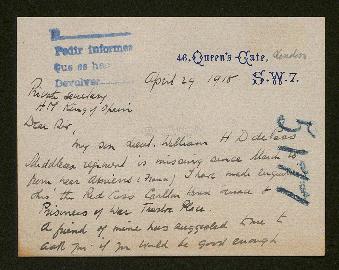 Pedir informes
Que se ha
Devolver
46. Queen's-Gate, London
S.W.7.
April 29 1918
Private Secretary
H M King of Spain
Dear Sir,
My son Lieut. William H D
Middlesex regiment is missing since March
from near I have made
the Red Cross Carlton House &
Prisoners of War Place.
A friend of mine has suggested to me to
ask you if you would be good enough